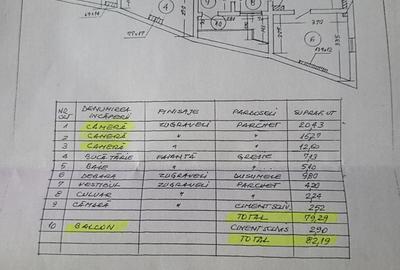 4
9
8
10
6
370
335
280
NR. CRT DENUMIREA ÎNCĂPERII FINISAJE PARDOSELI SUPRAF. UT
1 CAMERĂ ZUGRĂVELI PARCHET 20,43
2 CAMERĂ " " 15,27
3 CAMERĂ " " 12,60
4 BUCĂTĂRIE FAIANȚĂ GRESIE 7,13
5 BAIE " " 5,10
6 DEBARA ZUGRĂVELI DUȘUMELE 9,80
7 VESTIBUL ZUGRĂVELI PARCHET 4,20
8 CULUAR " " 2,24
9 CĂMARĂ " CIMENT SCLIV. 2,52
TOTAL 79,29
10 BALCON CIMENT SCLIV. 2,90
TOTAL 82,19